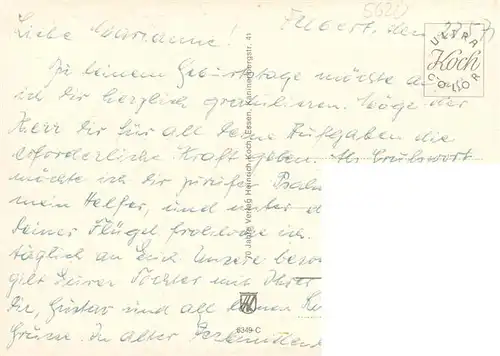 5620
Liebe Marianne!
Filbert, den 22.5.71
Zu deinem Geburtstage möchte auch
ich dir herzlich gratulieren. Möge der
Herr dir für all deine Aufgaben die
erforderliche Kraft geben. Als Grußwort
möchte ich dir zurufen Psalm
mein Helfer, und unter d
deiner Flügel frohlocke ich.
täglich an Euch Unsere beson
gilt Eurer Tochter mit Ihrer
Dir, Gustav und all deinen
Grüsse. In alter Verbunden
ULTRA
Koch
COLOR
70 Jahre Verlag Heinrich Koch, Essen, Keplingerstr. 41
6349-C